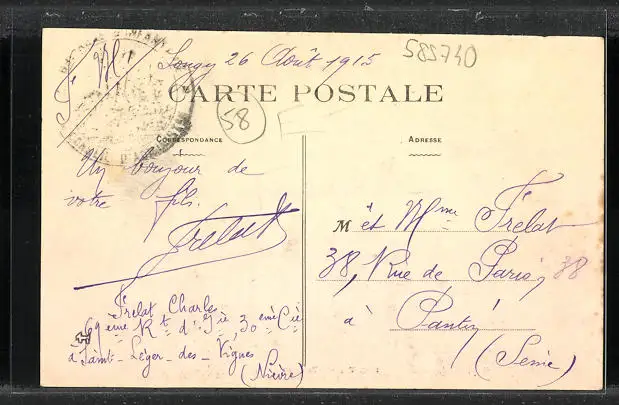 26 Août 1915
585740
S. M.
CARTE POSTALE
58
CORRESPONDANCE
ADRESSE
Un bonjour de
votre fils.
Frelat
M r et Mme Frelat
38, Rue de Paris, 38
à Pantin
(Seine)
Frelat Charles
eme Rt d' Irie 30 eme Cie
à Saint-Léger-des-Vignes
(Nièvre)